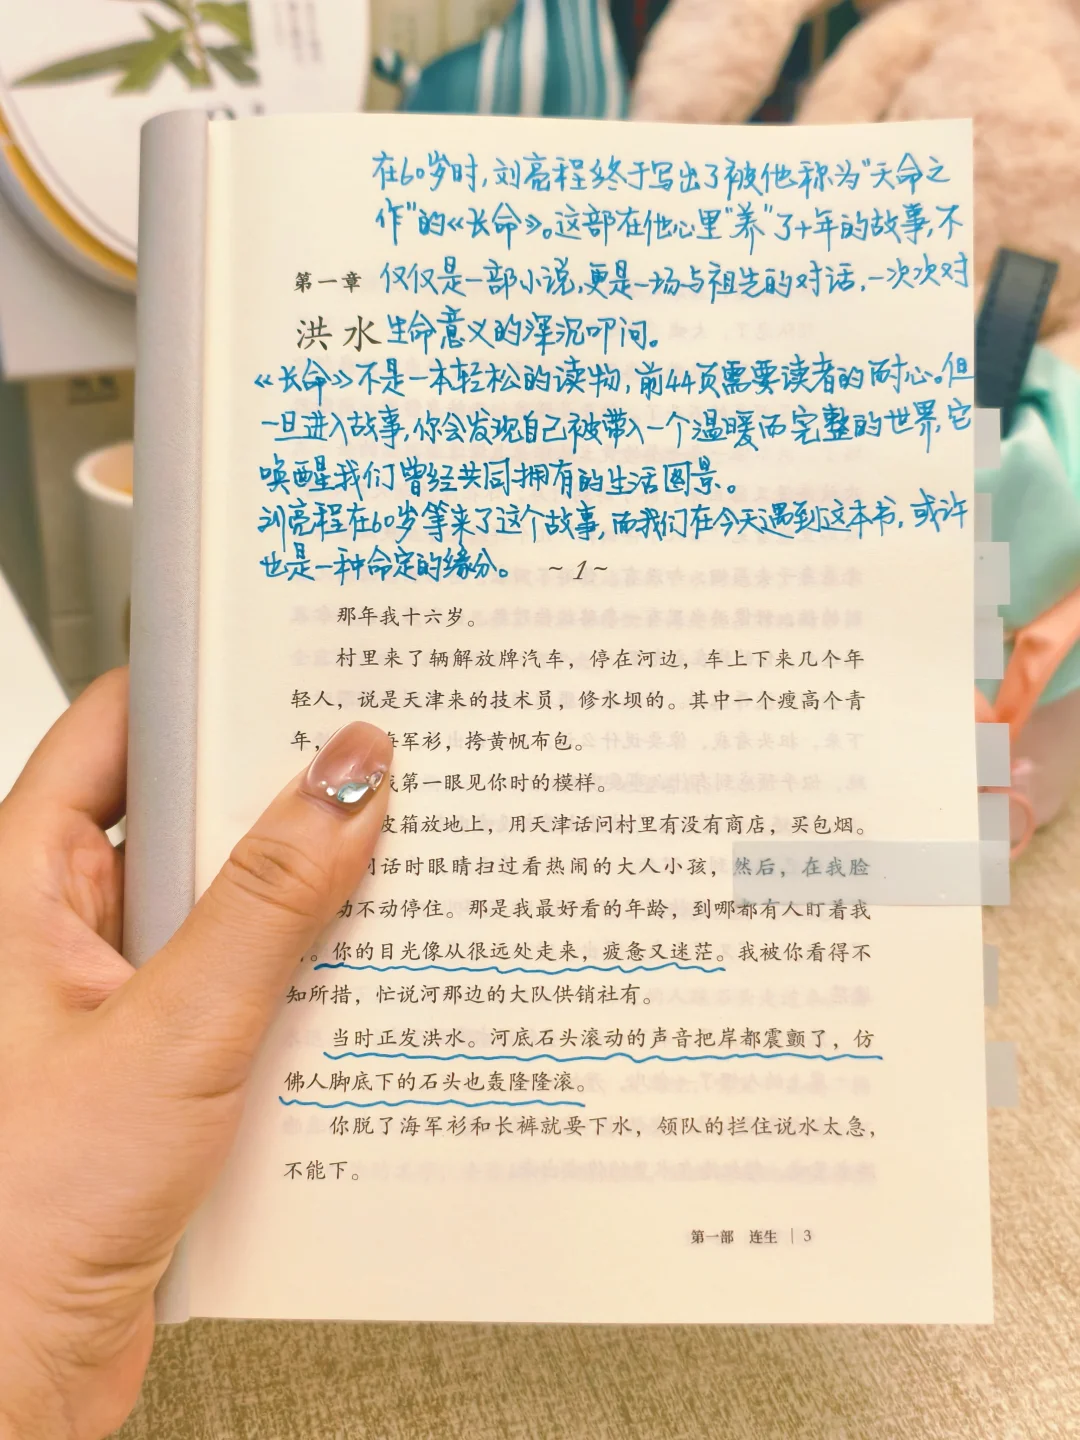 在60岁时,刘亮程终于写出了被他称为"天命之
作"的《长命》。这部在他心里"养"了十年的故事,不
第一章
仅仅是一部小说,更是一场与祖先的对话,一次次对
洪水
生命意义的深沉叩问。
《长命》不是一本轻松的读物,前44页需要读者的耐心。但
一旦进入故事,你会发现自己被带入一个温暖而完整的世界,它
唤醒我们曾经共同拥有的生活图景。
刘亮程在60岁等来了这个故事,而我们在今天遇到这本书,或许
也是一种命定的缘分。
~1~
那年我十六岁。
村里来了辆解放牌汽车，停在河边，车上下来几个年
轻人，说是天津来的技术员，修水坝的。其中一个瘦高个青
年，海军衫，挎黄帆布包。
我第一眼见你时的模样。
皮箱放地上，用天津话问村里有没有商店，买包烟。
话时眼睛扫过看热闹的大人小孩，然后，在我脸
动不动停住。那是我最好看的年龄，到哪都有人盯着我
。你的目光像从很远处走来，疲惫又迷茫。我被你看得不
知所措，忙说河那边的大队供销社有。
当时正发洪水。河底石头滚动的声音把岸都震颤了，仿
佛人脚底下的石头也轰隆隆滚。
你脱了海军衫和长裤就要下水，领队的拦住说水太急，
不能下。
第一部 连生 | 3